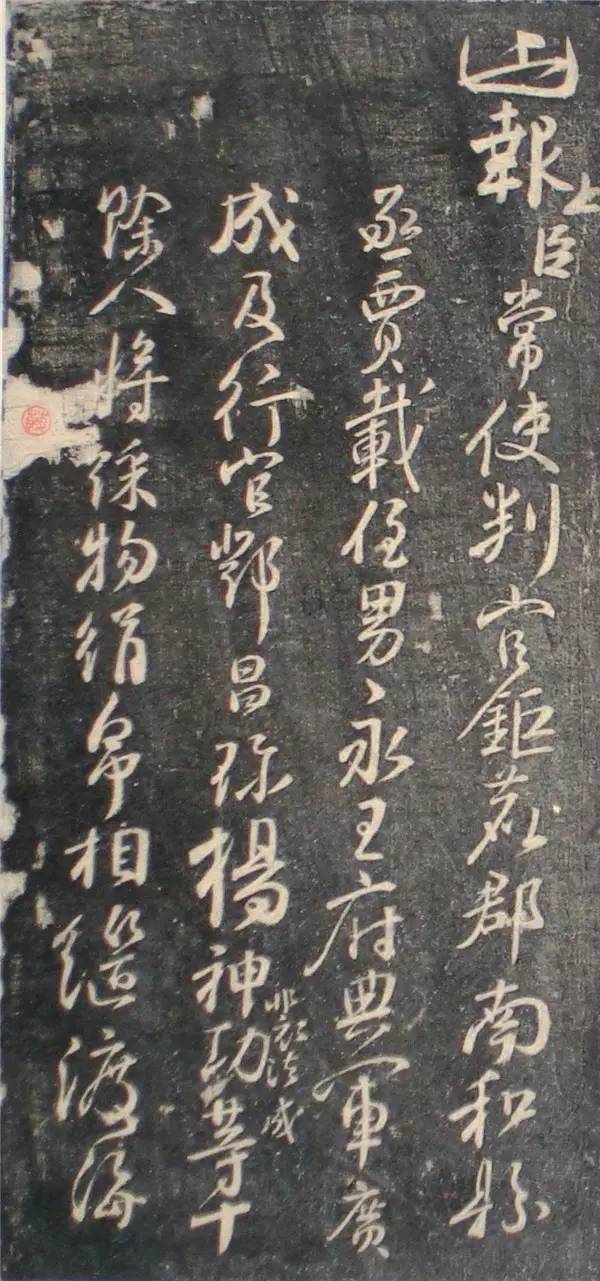 報上臣常使判官鉅鹿郡南和縣
丞賈載侄男永王府典軍廣
成及行官鄧昌珎楊神功等十
裴法成
餘人將綵物絹帛相繼渡海